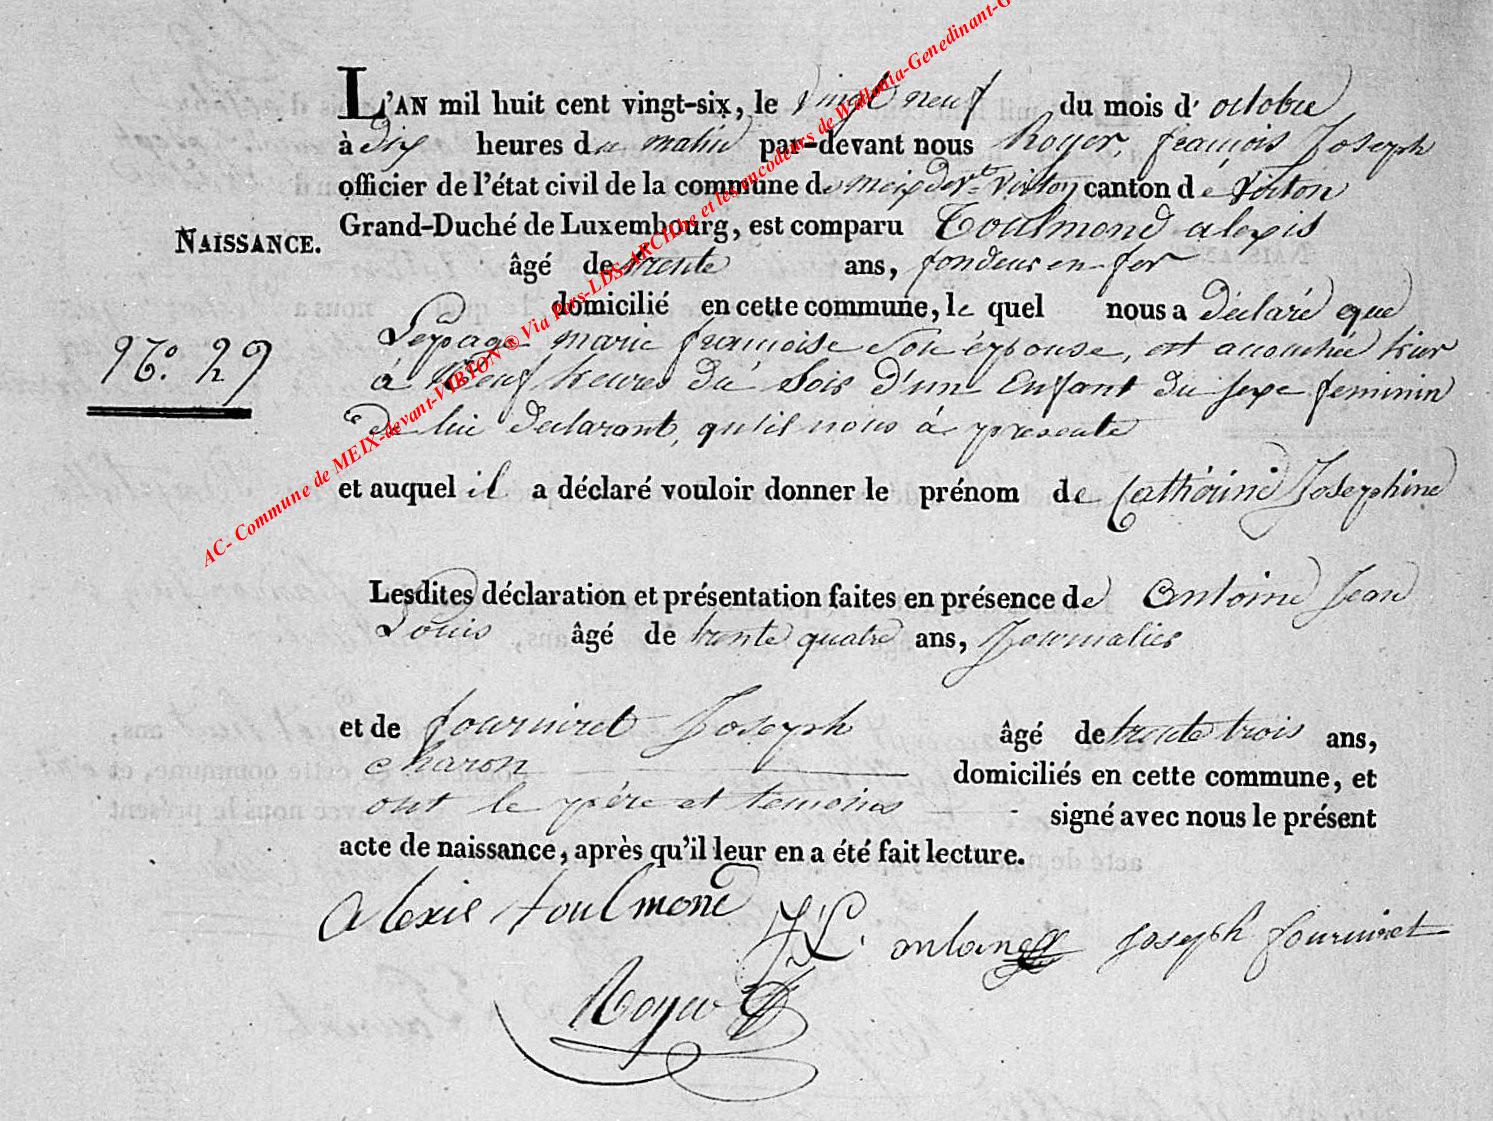 L'AN mil huit cent vingt-six, le vingt neuf du mois d'octobre
à dix heures du matin par-devant nous Royer, françois Joseph
officier de l'état civil de la commune de meix devt virton canton de virton
Grand-Duché de Luxembourg, est comparu Toulmond alexis
NAISSANCE.
âgé de trente ans, fondeur en fer
domicilié en cette commune, le quel nous a déclaré que
No. 29
Lepage marie françoise son épouse, est accouchée hier
à neuf heures du Soir d'un Enfant du sexe feminin
de lui déclarant, qu'il nous à présenté
et auquel il a déclaré vouloir donner le prénom de Cathérine Josephine
Lesdites déclaration et présentation faites en présence de Antoine Jean
Louis âgé de trente quatre ans, Journalier
et de fourniret Joseph âgé de trente trois ans,
charon domiciliés en cette commune, et
ont le père et temoins signé avec nous le présent
acte de naissance, après qu'il leur en a été fait lecture.
alexis toulmond
JL. antoine Joseph fourniret
Royer
AC- Commune de MEIX-devant-VIRTON ® Via Pars-LDS-ARCH.be et les encodeurs de Wallonia-Genedinant-G